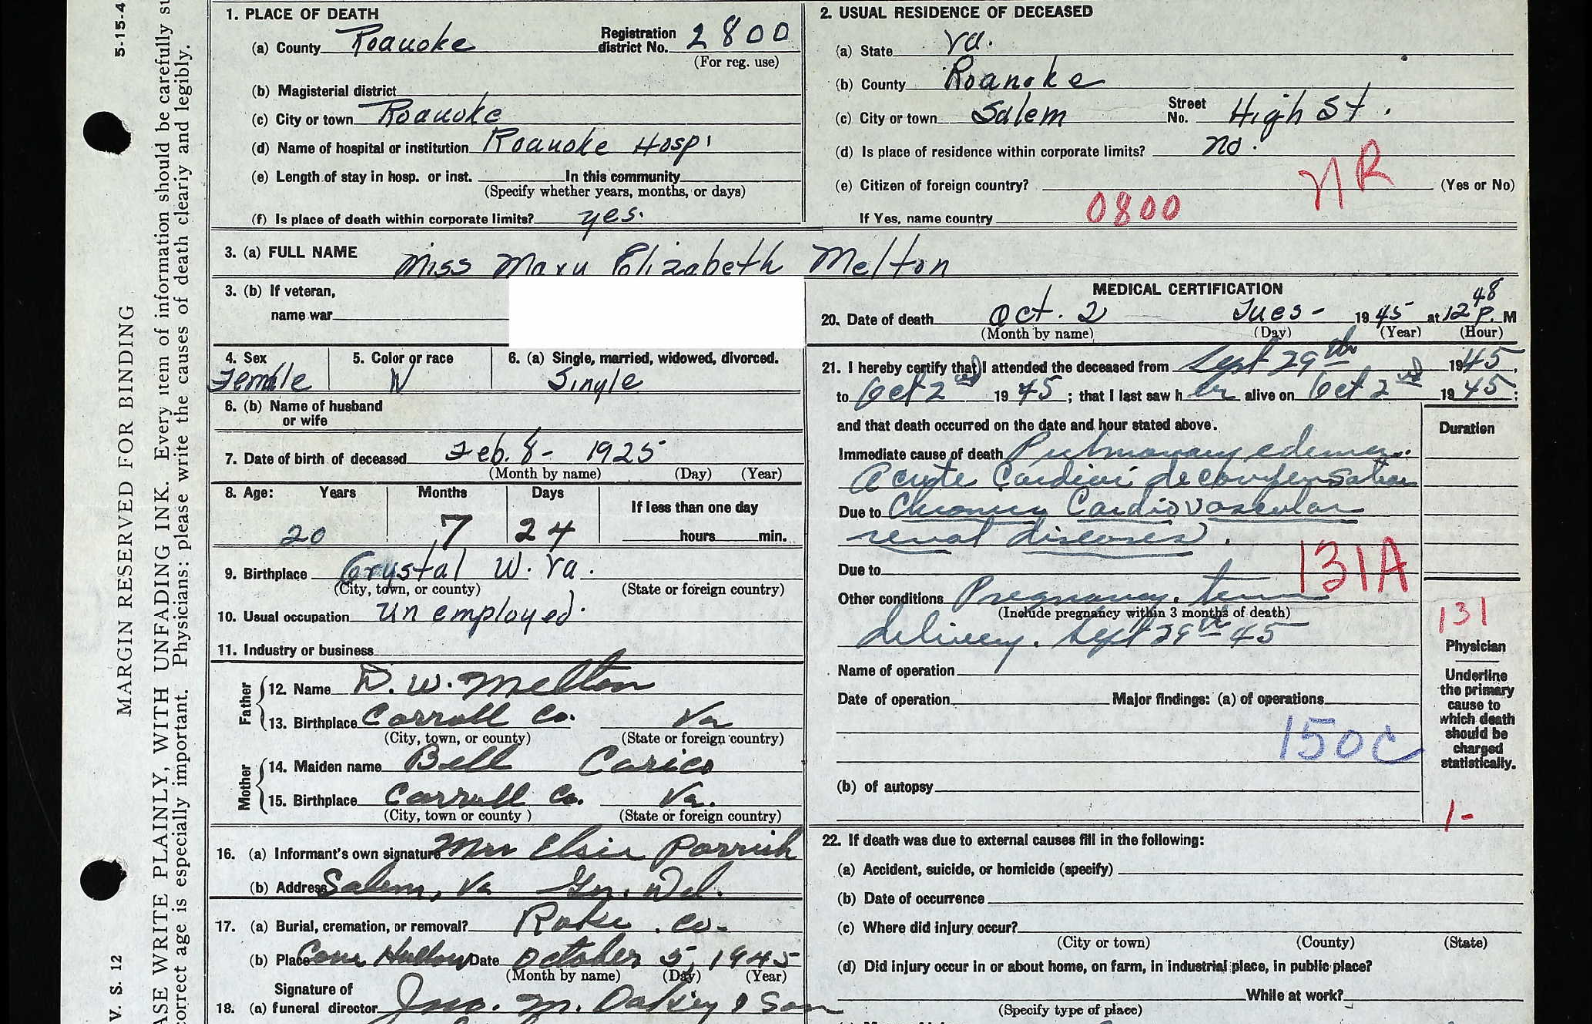 5-15-4
MARGIN RESERVED FOR BINDING
ASE WRITE PLAINLY, WITH UNFADING INK. Every item of information should be carefully su
correct age is especially important. Physicians: please write the causes of death clearly and legibly.
V. S. 12
1. PLACE OF DEATH
(a) County Roanoke Registration district No. 2800
(For reg. use)
(b) Magisterial district
(c) City or town Roanoke
(d) Name of hospital or institution Roanoke Hosp'
(e) Length of stay in hosp. or inst. In this community
(Specify whether years, months, or days)
(f) Is place of death within corporate limits? yes.
2. USUAL RESIDENCE OF DECEASED
(a) State Va.
(b) County Roanoke
(c) City or town Salem Street No. High St.
(d) Is place of residence within corporate limits? no.
(e) Citizen of foreign country? NR (Yes or No)
If Yes, name country 0800
3. (a) FULL NAME Miss Mary Elizabeth Melton
3. (b) If veteran,
name war
4. Sex 5. Color or race 6. (a) Single, married, widowed, divorced.
Female W Single
6. (b) Name of husband
or wife
7. Date of birth of deceased Feb. 8 - 1925
(Month by name) (Day) (Year)
8. Age: Years Months Days If less than one day
20 7 24 hours min.
9. Birthplace Crystal W. Va.
(City, town, or county) (State or foreign country)
10. Usual occupation Unemployed.
11. Industry or business
Father
12. Name D. W. Melton
13. Birthplace Carroll Co. Va
(City, town, or county) (State or foreign country)
Mother
14. Maiden name Bell Carico
15. Birthplace Carroll Co. Va.
(City, town or county) (State or foreign country)
16. (a) Informant's own signature Mrs Elsie Parrish
(b) Address Salem, Va Gen. Del.
17. (a) Burial, cremation, or removal? Roke. Co.
(b) Place Hollow Date October 5, 1945
(Month by name) (Day) (Year)
Signature of
18. (a) funeral director Jno. M. Oakey & Son
MEDICAL CERTIFICATION
20. Date of death Oct. 2 Tues - 1945 at 12 48 P. M
(Month by name) (Day) (Year) (Hour)
21. I hereby certify that I attended the deceased from Sept 29th 1945,
to Oct 2nd 1945; that I last saw her alive on Oct 2nd 1945;
and that death occurred on the date and hour stated above.
Duration
Immediate cause of death Pulmonary edema.
Acute Cardiac decompensation
Due to Chronic Cardiovascular
renal diseases.
Due to 131A
Other conditions Pregnancy. term
(Include pregnancy within 3 months of death)
delivery. Sept 29th 45
Name of operation
Date of operation Major findings: (a) of operations
150C
(b) of autopsy
131
Physician
Underline
the primary
cause to
which death
should be
charged
statistically.
1-
22. If death was due to external causes fill in the following:
(a) Accident, suicide, or homicide (specify)
(b) Date of occurrence
(c) Where did injury occur?
(City or town) (County) (State)
(d) Did injury occur in or about home, on farm, in industrial place, in public place?
While at work?
(Specify type of place)